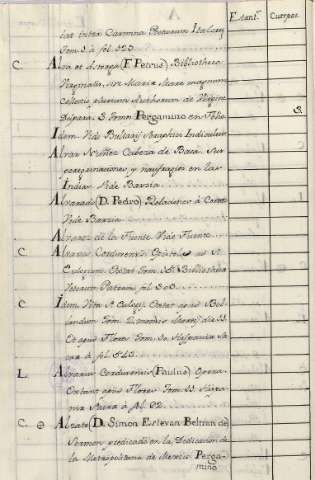 Estant.ˢ Cuerpos.
iat intra Carmina Poetarum Italor.
Tom. 1. à fol. 523.
C. Alva et Astorga (F. Petrus) Bibliotheca
Virginalis, sive Mariæ Mare magnum
Collectio plurium Authorum de Virgine
Deipara. 3. Tomos Pergamino en Folio 3.
Idem. Vide Bullarij Seraphici Indiculum
Alvar Nuñez Cabeza de Baca. Sus
peregrinaciones, y naufragios en las
Indias Vide Barzia.
Alvarado (D. Pedro) Relaciones à Cortes
Vide Barzia
Alvarez de la Fuente. Vide Fuente.
C. Alvarus Cordubensis. Epistola ad S.
Eulogium. Extat Tom. Bibliotheca
Veterum Patrum, fol.
C. Idem. Vita S. Eulogij. Extat apud Bol-
landum Tom. 2. mensis Martij die 11.
Et apud Florez Tom. 10. Hispania Sa-
cra à fol. 543.
L. Alvarus Cordubensis (Paulus) Opera.
Extant apud Florez Tom. 11. Hispa-
nia Sacra à fol. 62.
C. Alzate (D. Simon Estevan Beltran de
Sermon predicado en la Dedicacion de
la Metropolitana de Mexico Perga-
mino